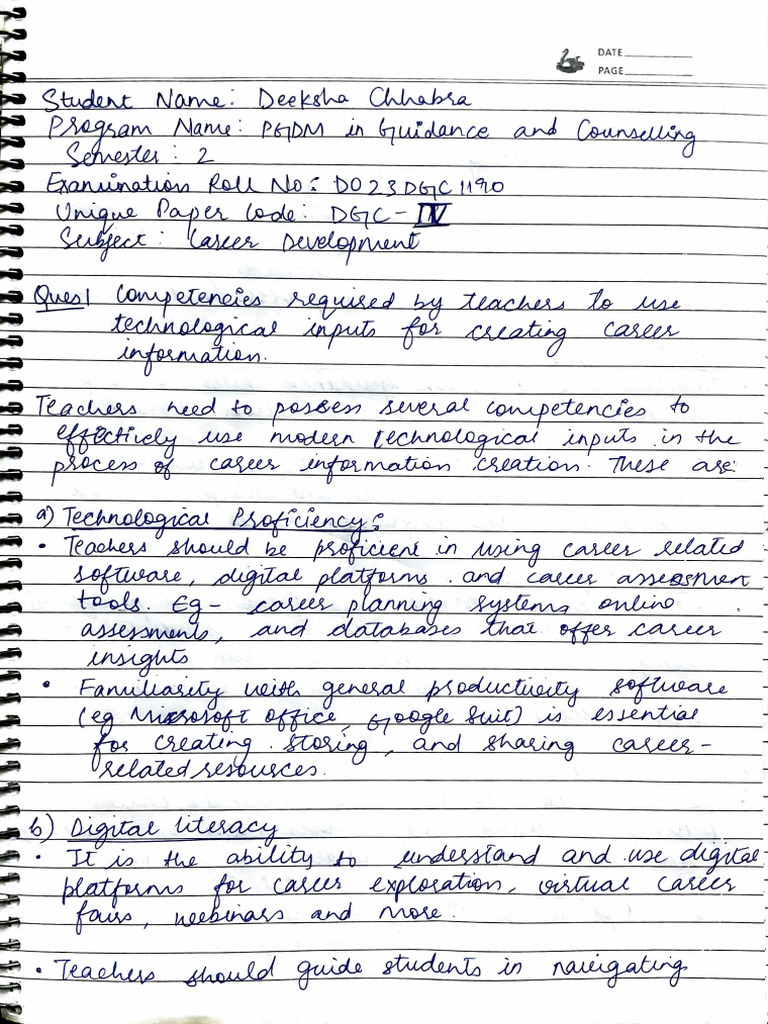 DATE
PAGE
Student Name: Deeksha Chhabra
Program Name: PGDM in Guidance and Counselling
Semester: 2
Examination Roll No: D023DGC1190
Unique Paper Code: DGC-IV
Subject: Career Development
Ques1 Competencies required by teachers to use
technological inputs for creating career
information.
Teachers need to possess several competencies to
effectively use modern technological inputs in the
process of career information creation. These are:
a) Technological Proficiency:
• Teachers should be proficient in using career related
software, digital platforms and career assessment
tools. Eg- career planning systems, online
assessments, and databases that offer career
insights
• Familiarity with general productivity software
(eg Microsoft office, Google Suit) is essential
for creating, storing, and sharing career-
related resources.
b) Digital literacy
• It is the ability to understand and use digital
platforms for career exploration, virtual career
fairs, webinars and more.
• Teachers should guide students in navigating